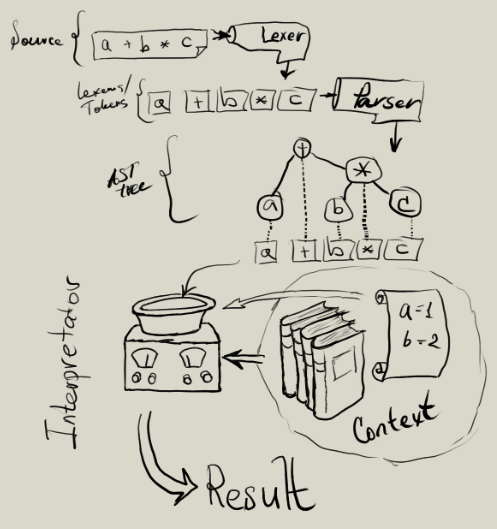 Source { a + b * c → Lexer
Lexems/
Tokens { a + b * c → Parser
AST
tree {
+
*
a b c
a + b * c
Interpretator
a=1
b=2
Context
Result